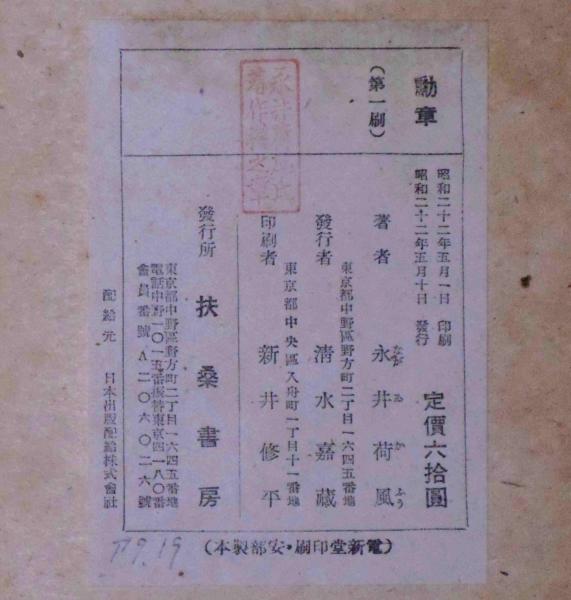 勳章
（第一刷）
昭和二十二年五月一日 印刷
昭和二十二年五月十日 發行
定價六拾圓
著者 永井荷風
なが ゐ か ふう
東京都中野區野方町二丁目一六四五番地
發行者 清水嘉藏
東京都中央區入舟町一丁目十一番地
印刷者 新井修平
發行所 扶桑書房
東京都中野區野方町二丁目一六四五番地
電話中野一〇一五番振替東京四一八〇番
會員番號A二〇六〇二六號
配給元 日本出版配給株式會社
（電新堂印刷・安部製本）